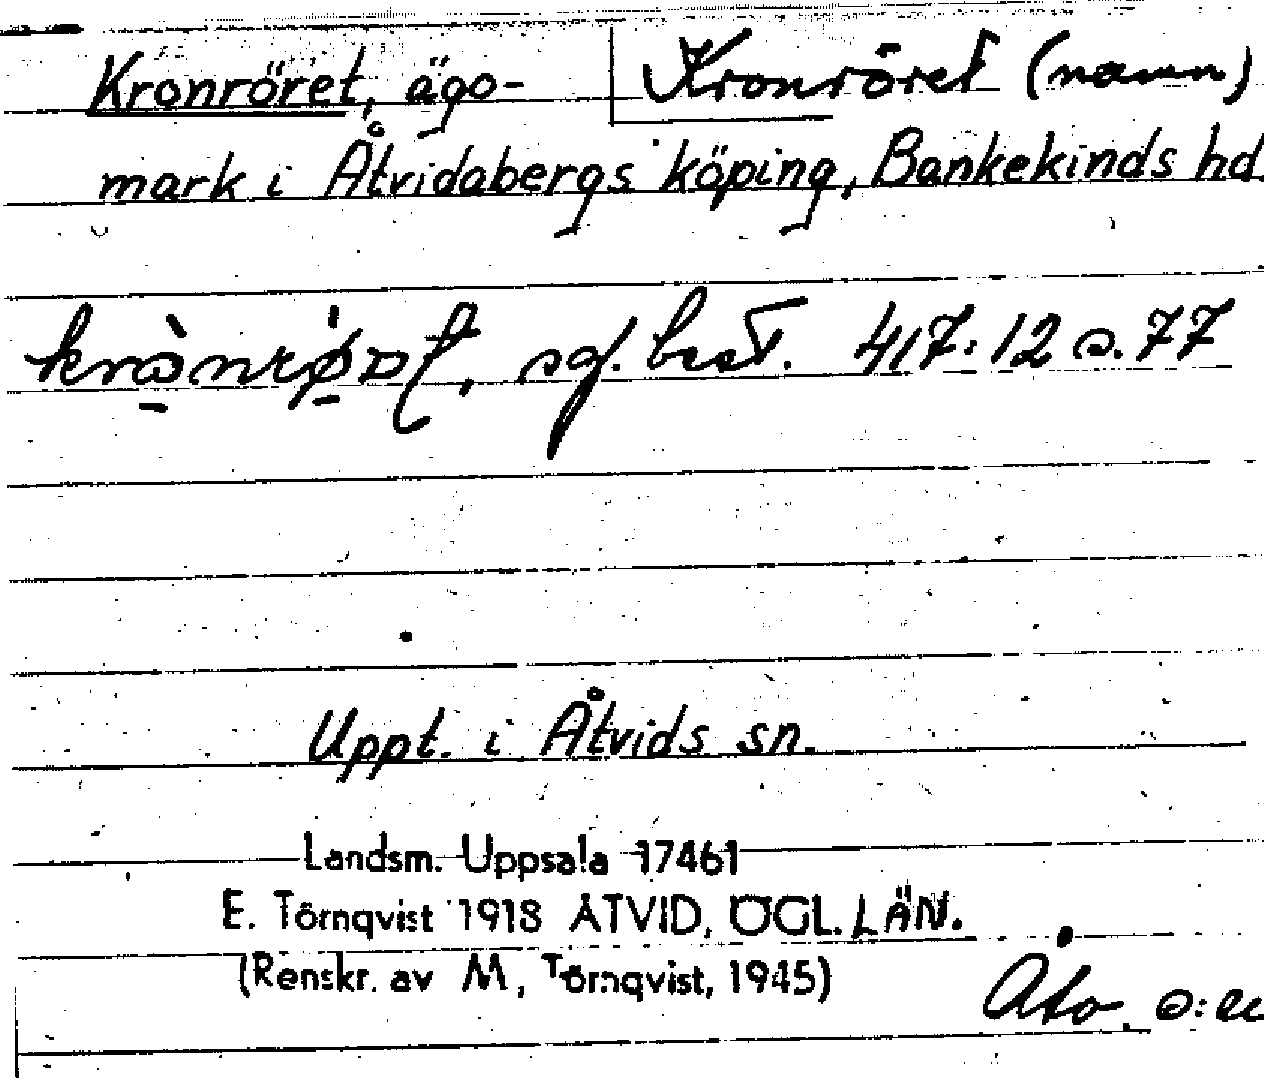 Kronröret, ägo- Kronröret (namn)
mark i Åtvidabergs köping, Bankekinds hd.
sg. best. 417:12 s. 77
Uppt. i Åtvids sn.
Landsm. Uppsala 17461
E. Törnqvist 1918 ÅTVID, ÖGL. LÄN.
(Renskr. av M. Törnqvist, 1945)